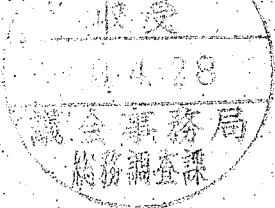 収受
4.4.28
議会事務局
総務調査課